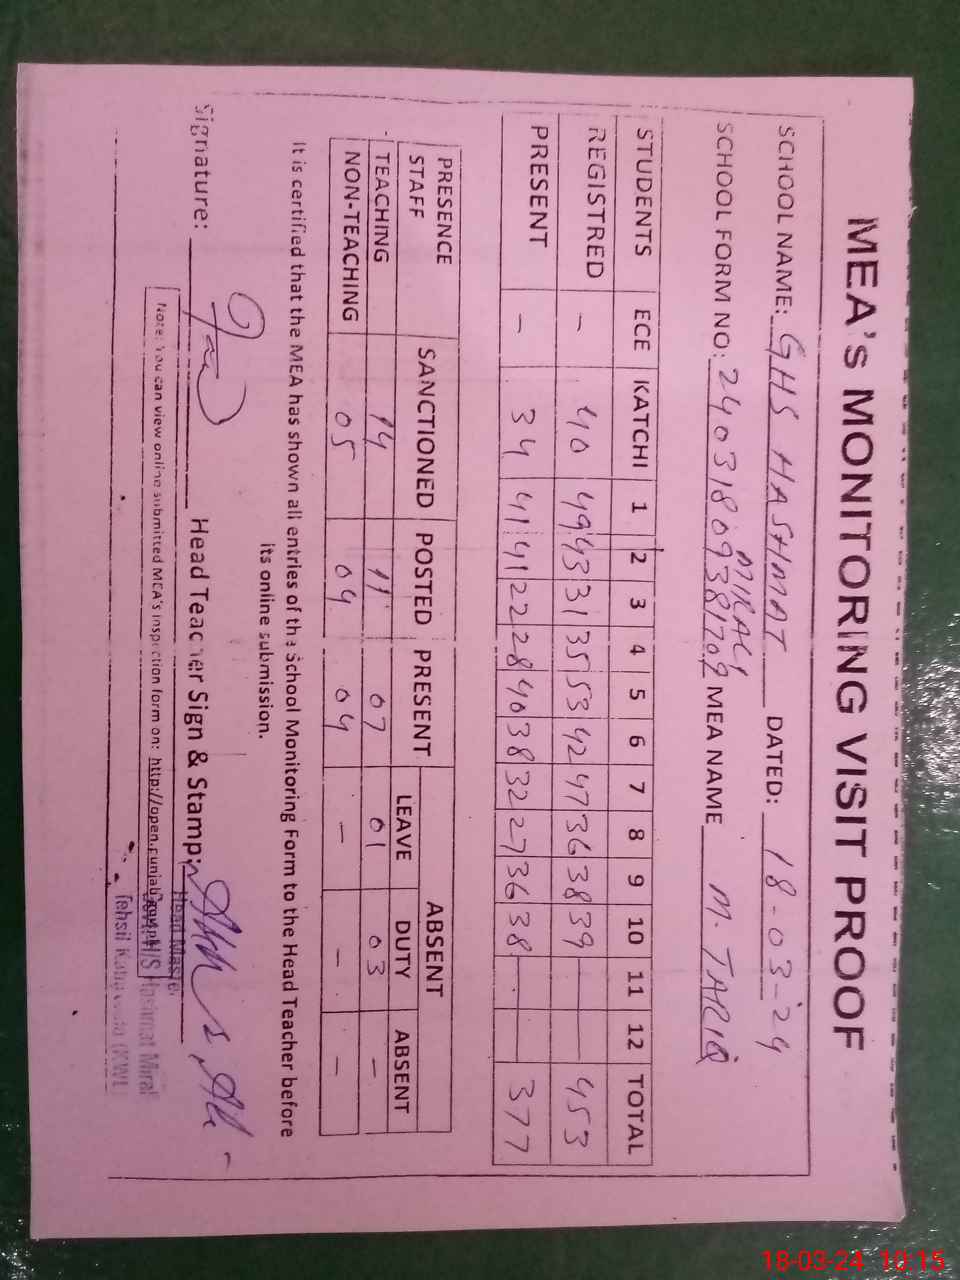 MEA's MONITORING VISIT PROOF
SCHOOL NAME: GHS HASHMAT MIRALI DATED: 18-03-24
SCHOOL FORM NO: 24031809381702 MEA NAME M. TARIQ
STUDENTS ECE KATCHI 1 2 3 4 5 6 7 8 9 10 11 12 TOTAL
REGISTRED - 40 49 43 31 35 53 42 47 36 38 39 453
PRESENT - 34 41 41 22 28 40 38 32 27 36 38 - 377
PRESENCE STAFF SANCTIONED POSTED PRESENT ABSENT
LEAVE DUTY ABSENT
TEACHING 14 11 07 01 03 -
NON-TEACHING 05 04 04 - - -
It is certified that the MEA has shown all entries of the School Monitoring Form to the Head Teacher before
its online submission.
Signature: Head Teacher Sign & Stamp:
Head Master
Note: You can view online submitted MEA's inspection form on: http://open.punjab.gov.pk
Hashmat Mirali
Tehsil (KWL)
18-03-24 10:15